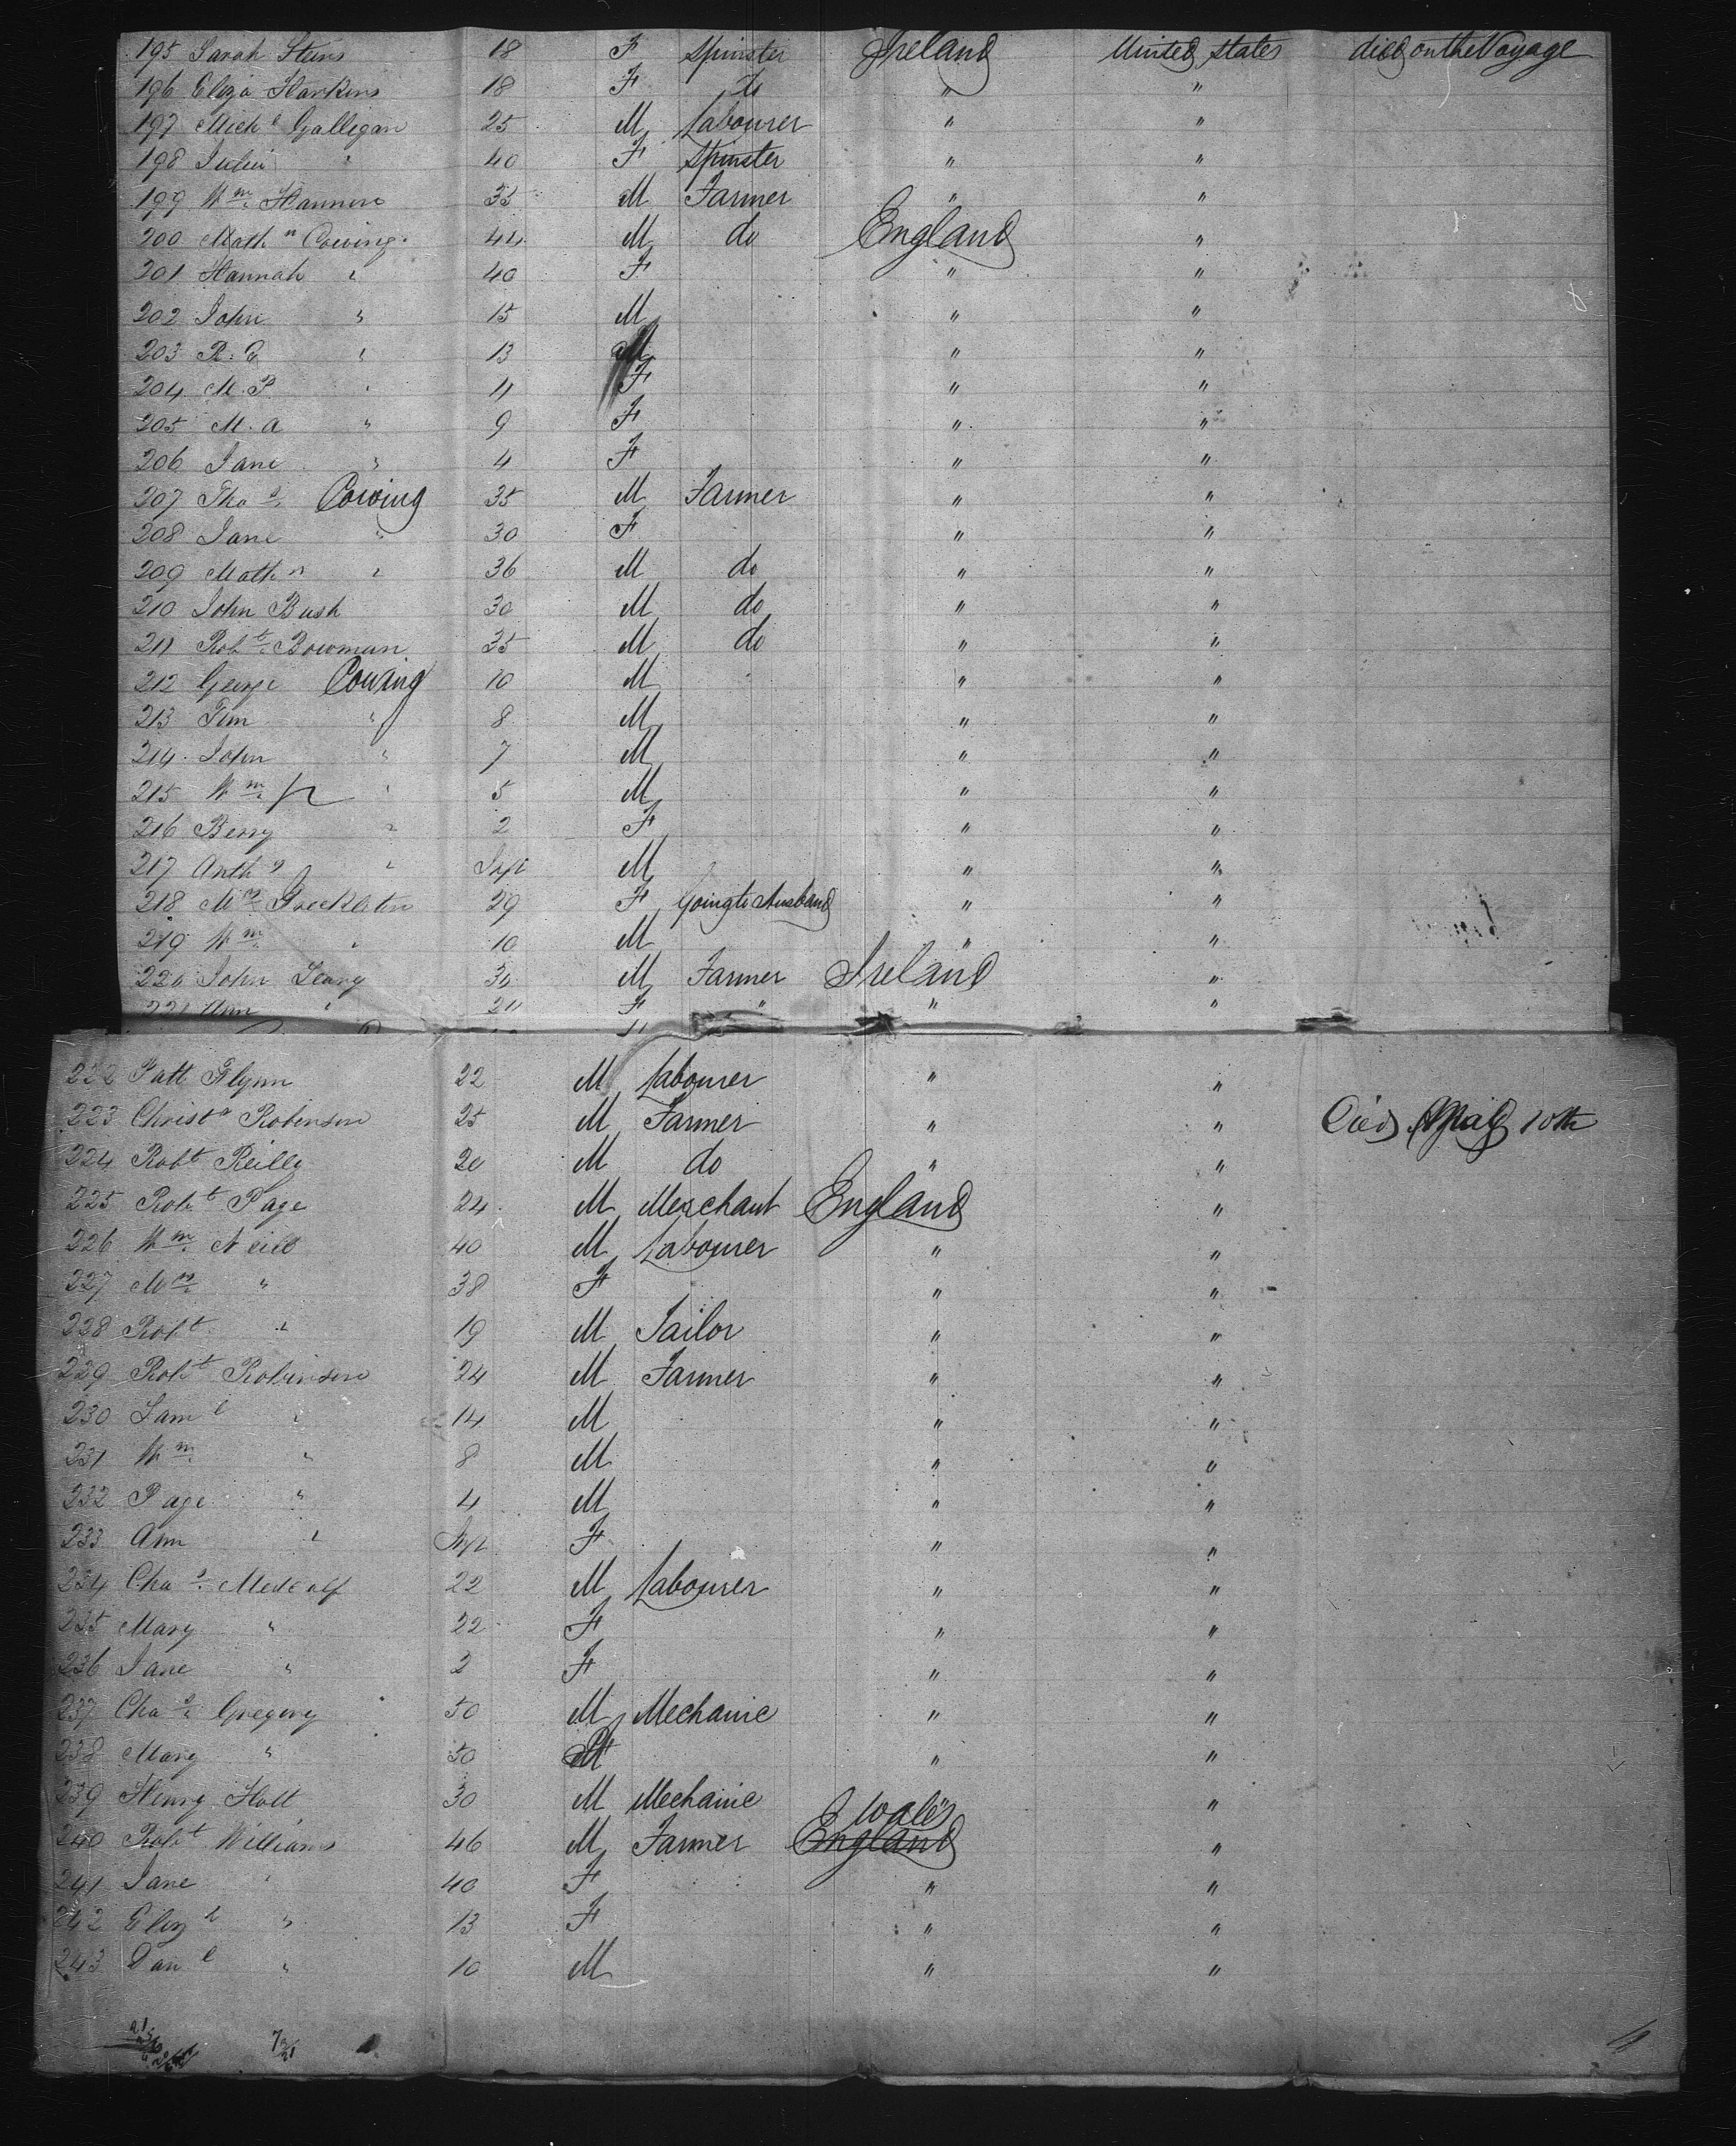 195 Sarah Steins 18 F Spinster Ireland United States died on the Voyage
196 Eliza Harkins 18 F do " "
197 Mich l Galligan 25 M Labourer " "
198 Julia " 40 F Spinster " "
199 Wm Hannen 35 M Farmer " "
200 Math w Cowing 44 M do England "
201 Hannah " 40 F " "
202 John " 15 M " "
203 R. " 13 M " "
204 M. P " 11 F " "
205 M. a " 9 F " "
206 Jane " 4 F " "
207 Tho s Cowing 35 M Farmer " "
208 Jane " 30 F " "
209 Math w " 36 M do " "
210 John Bush 30 M do " "
211 Rob t Bowman 35 M do " "
212 George Cowing 10 M " "
213 Tim " 8 M " "
214 John " 7 M " "
215 Wm " 5 M " "
216 Bessy " 2 F " "
217 Anth y " Inft M " "
218 Mrs Freckleton 29 F Going to Husband " "
219 Wm " 10 M " "
220 John Leary 30 M Farmer Ireland "
221 Ann " 20 F " " "
222 Patt Flynn 22 M Labourer " "
223 Christ r Robinson 25 M Farmer " " Died 10th
224 Robt Reilly 20 M do " "
225 Rob t Page 24 M Merchant England "
226 Wm Neill 40 M Labourer " "
227 Mrs " 38 F " "
228 Robt " 19 M Tailor " "
229 Robt Robinson 24 M Farmer " "
230 Sam l " 14 M " "
231 Wm " 8 M " "
232 Page " 4 M " "
233 Ann " Inft F " "
234 Cha s Metcalf 22 M Labourer " "
235 Mary " 22 F " "
236 Jane " 2 F " "
237 Cha s Gregory 50 M Mechanic " "
238 Mary " 50 " "
239 Henry Holt 30 M Mechanic "
Wales
240 Robt Williams 46 M Farmer England "
241 Jane " 40 F " "
242 Eliz h " 13 F " "
243 Dan l " 10 M " "